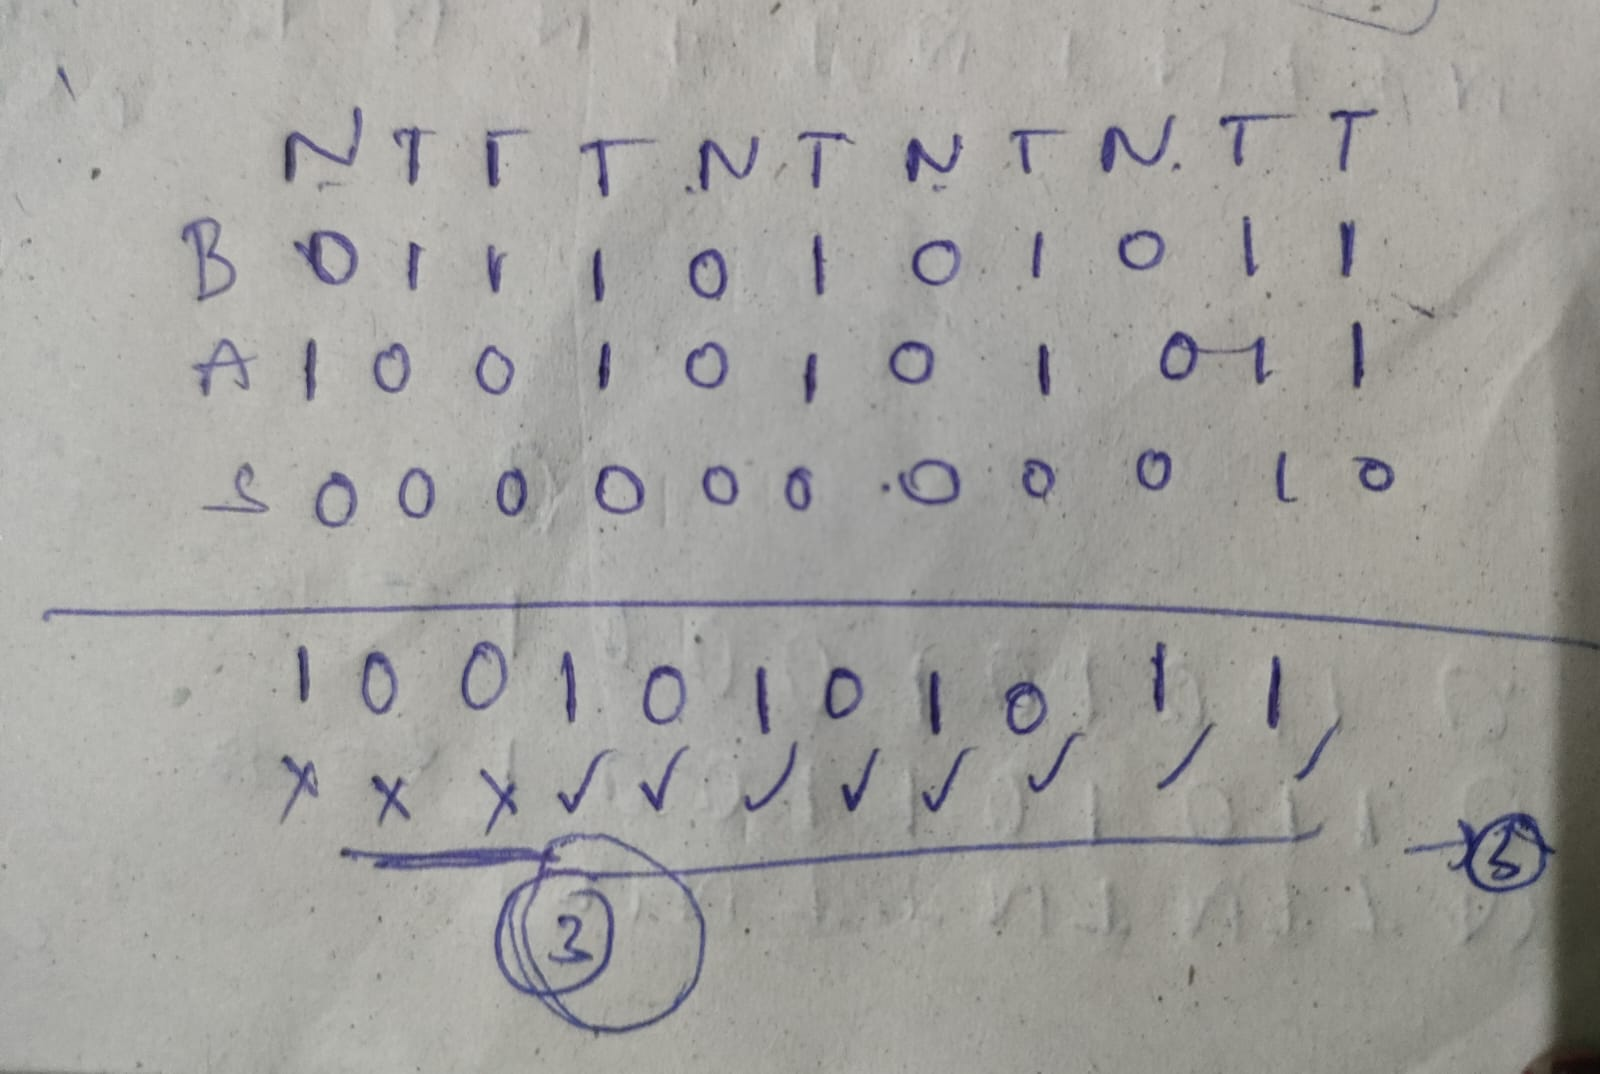 N T T T N T N T N T T
B 0 1 1 1 0 1 0 1 0 1 1
A 1 0 0 1 0 1 0 1 0 1 1
S 0 0 0 0 0 0 0 0 0 1 0
1 0 0 1 0 1 0 1 0 1 1
x x x ✓ ✓ ✓ ✓ ✓ ✓ ✓ ✓
3